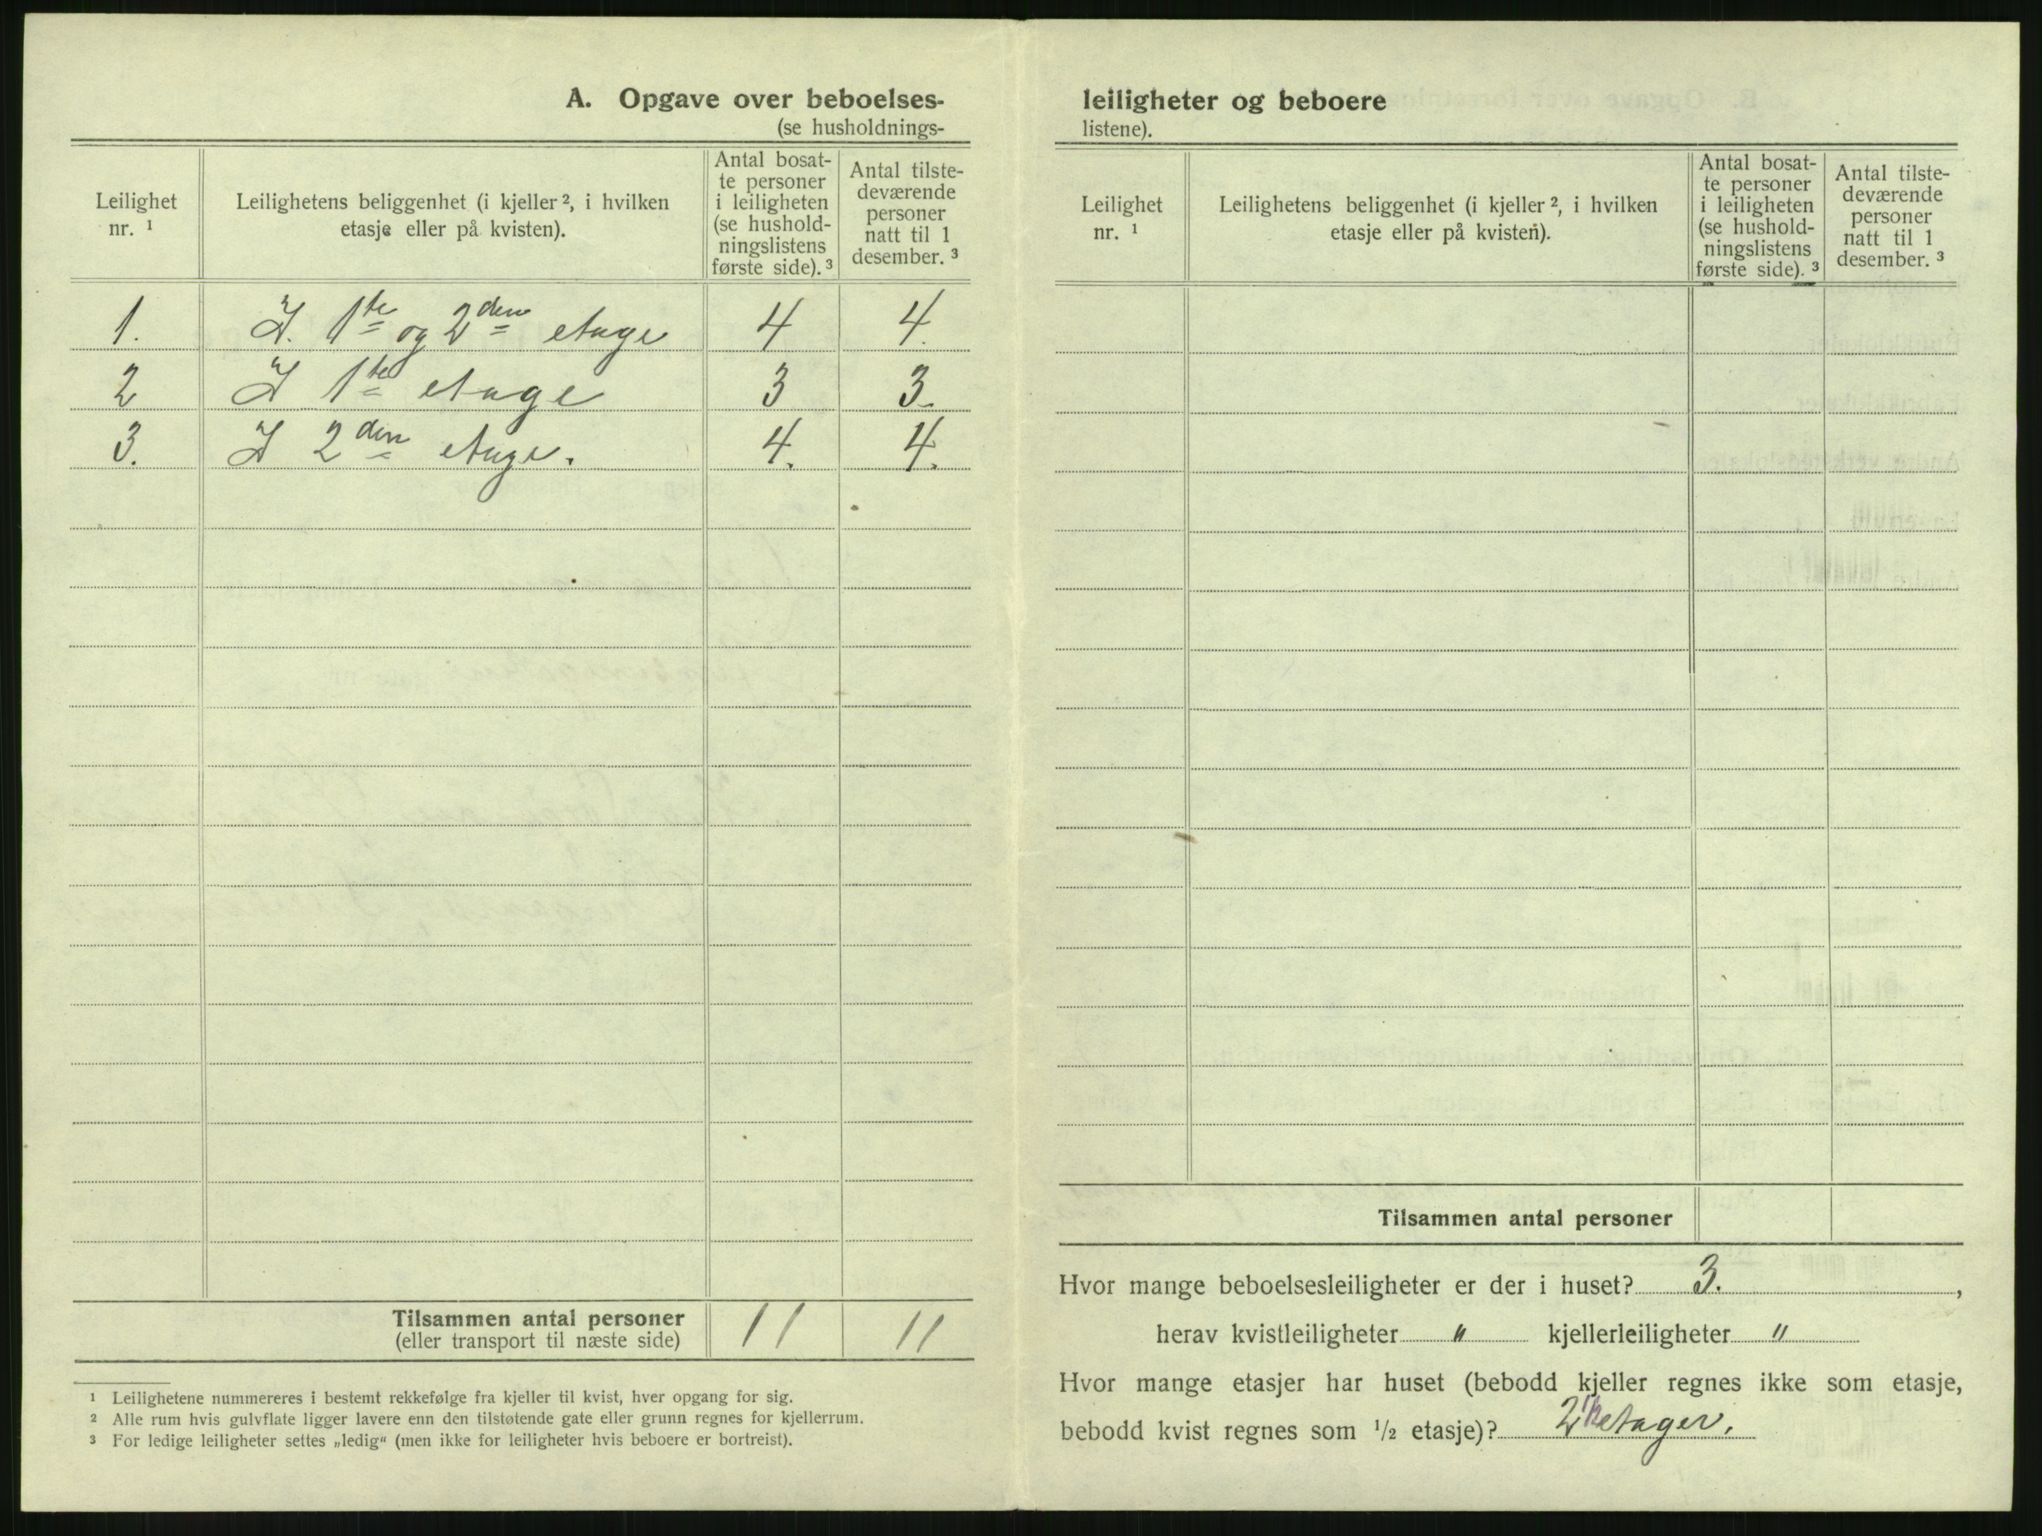 A. Opgave over beboelses-
(se husholdnings-
Leilighet nr. ¹
Leilighetens beliggenhet (i kjeller ², i hvilken etasje eller på kvisten).
Antal bosat-
te personer
i leiligheten
(se hushold-
ningslistens
første side). ³
Antal tilste-
deværende
personer
natt til 1
desember. ³
1. I. 1te og 2den etage 4 4.
2 I 1te etage 3 3.
3. I 2den etage. 4. 4.
Tilsammen antal personer 11 11
(eller transport til næste side)
¹ Leilighetene nummereres i bestemt rekkefølge fra kjeller til kvist, hver opgang for sig.
² Alle rum hvis gulvflate ligger lavere enn den tilstøtende gate eller grunn regnes for kjellerrum.
³ For ledige leiligheter settes „ledig“ (men ikke for leiligheter hvis beboere er bortreist).
leiligheter og beboere
listene).
Leilighet nr. ¹
Leilighetens beliggenhet (i kjeller ², i hvilken etasje eller på kvisten).
Antal bosat-
te personer
i leiligheten
(se hushold-
ningslistens
første side). ³
Antal tilste-
deværende
personer
natt til 1
desember. ³
Tilsammen antal personer
Hvor mange beboelsesleiligheter er der i huset? 3. ,
herav kvistleiligheter " kjellerleiligheter "
Hvor mange etasjer har huset (bebodd kjeller regnes ikke som etasje,
bebodd kvist regnes som ½ etasje)? 2 etager.